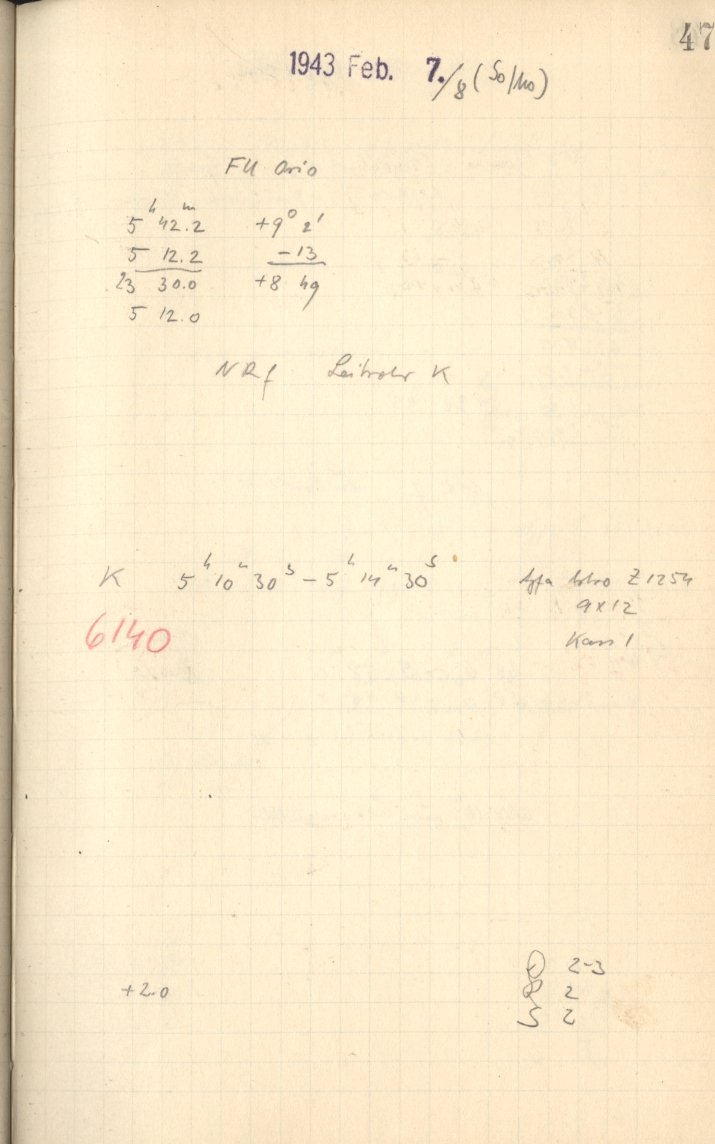 47
1943 Feb. 7./8 (So/Mo)
FU Orio
5ʰ 42ᵐ.2 +9° 2'
5 12.2 -13
23 30.0 +8 49
5 12.0
NRf Leitrohr K
K 5ʰ 10ᵐ 30ˢ - 5ʰ 14ᵐ 30ˢ Agfa Astro Z1254
6140 9x12
Kass 1
2-3
+2.0 2
S 2